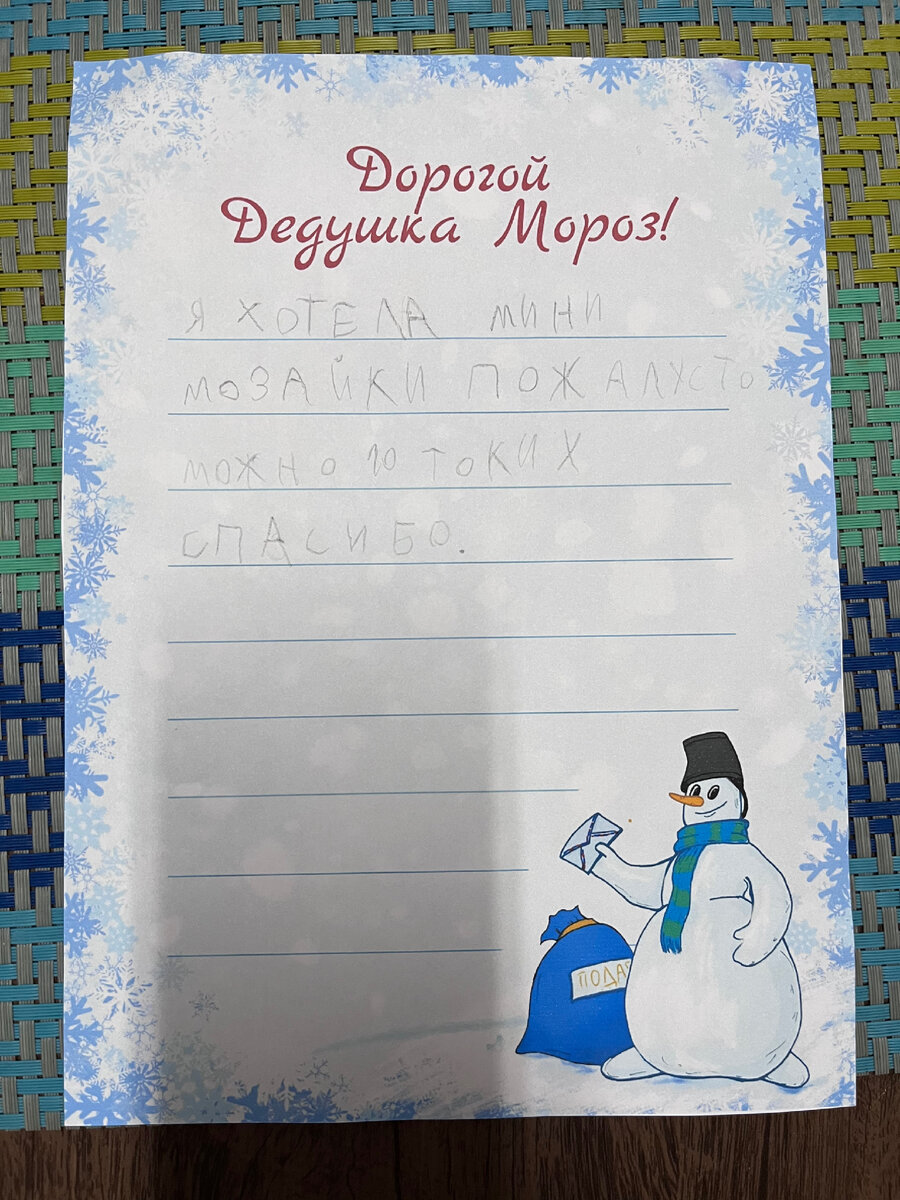 Дорогой
Дедушка Мороз!
Я ХОТЕЛА МИНИ
МОЗАЙКИ ПОЖАЛУСТО
МОЖНО 10 ТОКИХ
СПАСИБО.
ПОДА